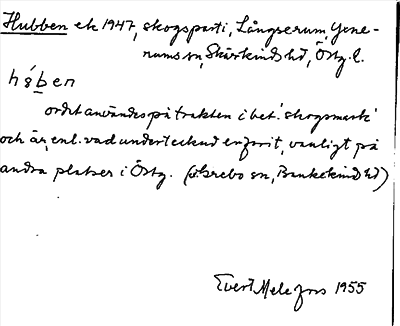 Hubben ek 1947, skogsparti, Långserum, Yene-
nums sn, Skärkinds hd, Östg. l.
hében
ordet användes på trakten i bet. 'skogsmark'
och är, enl. vad undertecknad erfarit, vanligt på
andra platser i Östg. (Grebo sn, Bankekinds hd)
Evert Melefors 1955